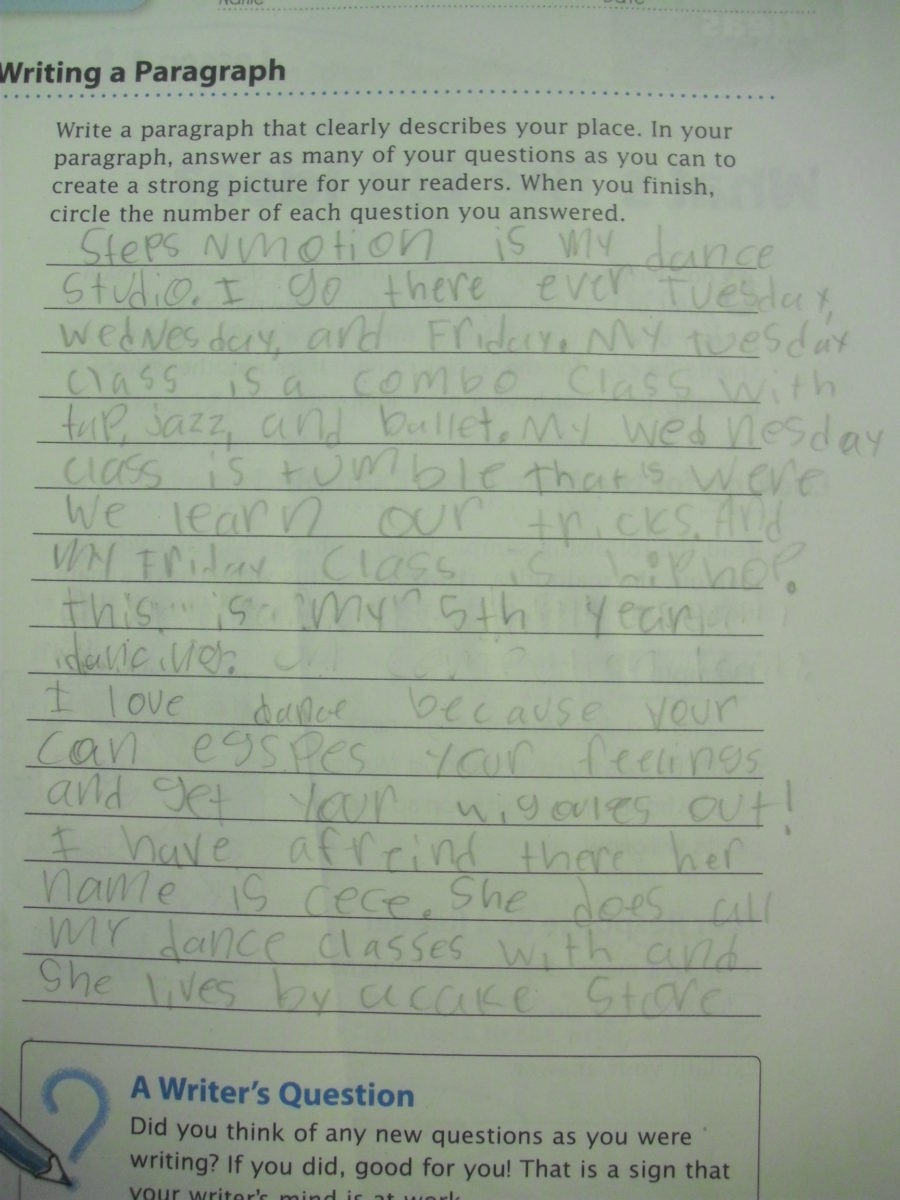 Name
Date
Writing a Paragraph
Write a paragraph that clearly describes your place. In your
paragraph, answer as many of your questions as you can to
create a strong picture for your readers. When you finish,
circle the number of each question you answered.
Steps Nmotion is my dance
Studio. I go there ever Tuesday,
wedNesday, and Friday. My tuesday
class is a combo Class with
tap, jazz, and ballet. My wedNesday
class is tumble that's were
We learn our tricks. And
My Friday Class is hiphop.
this is My 5th year
I love dance because your
can egsspes your feelings
and get your wigoules out!
I have afreind there her
name is cece. She does all
my dance classes with and
She lives by acake Store
A Writer's Question
Did you think of any new questions as you were
writing? If you did, good for you! That is a sign that
your writer's mind is at work.